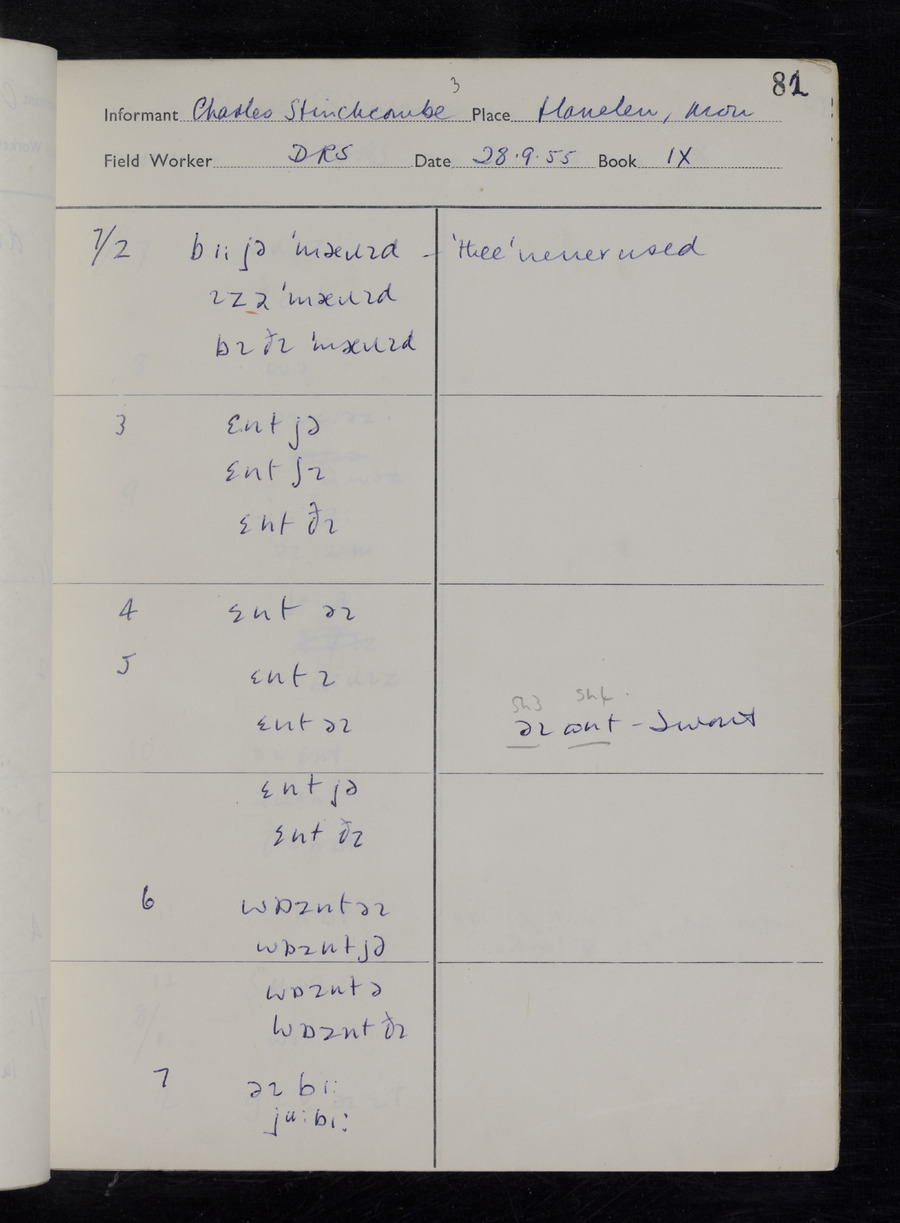 3
81
Informant Charles Stinchcombe Place Llanelen, Mon
Field Worker DRS Date 28.9.55 Book IX
7/2 biː jə ˈmæɹɪd – 'thee' never used
ɪz ə ˈmæɹɪd
bɪ ðɪ ˈmæɹɪd
3 ɛnt jə
ɛnt ʃɪ
ɛnt ðɪ
4 ɛnt əɪ
5 ɛnt ɪ
ɛnt əɪ
əɪ ont – I won't
ɛnt jə
ɛnt ðɪ
6 wɒznt əɪ
wɒznt jə
wɒznt ə
wɒznt ðɪ
7 əɪ biː
juː biː